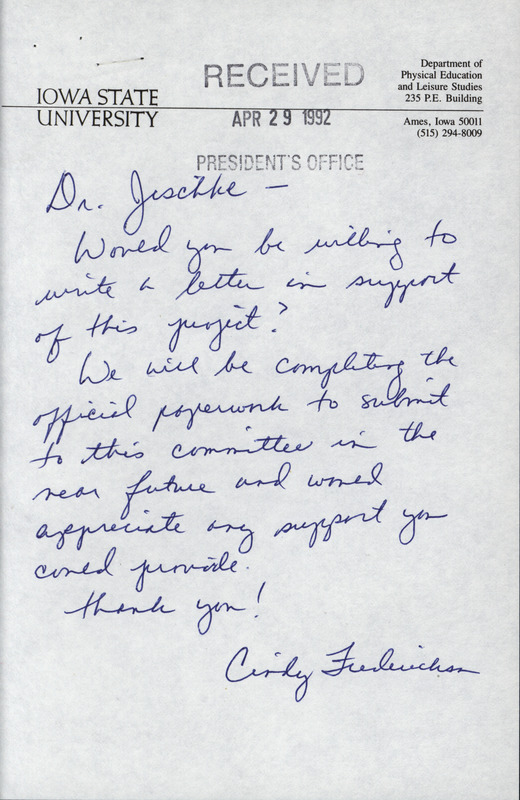 RECEIVED
APR 29 1992
PRESIDENT'S OFFICE
IOWA STATE
UNIVERSITY
Department of
Physical Education
and Leisure Studies
235 P.E. Building
Ames, Iowa 50011
(515) 294-8009
Dr. Jischke —
Would you be willing to
write a letter in support
of this project?
We will be completing the
official paperwork to submit
to this committee in the
near future and would
appreciate any support you
could provide.
Thank you!
Cindy Frederickson